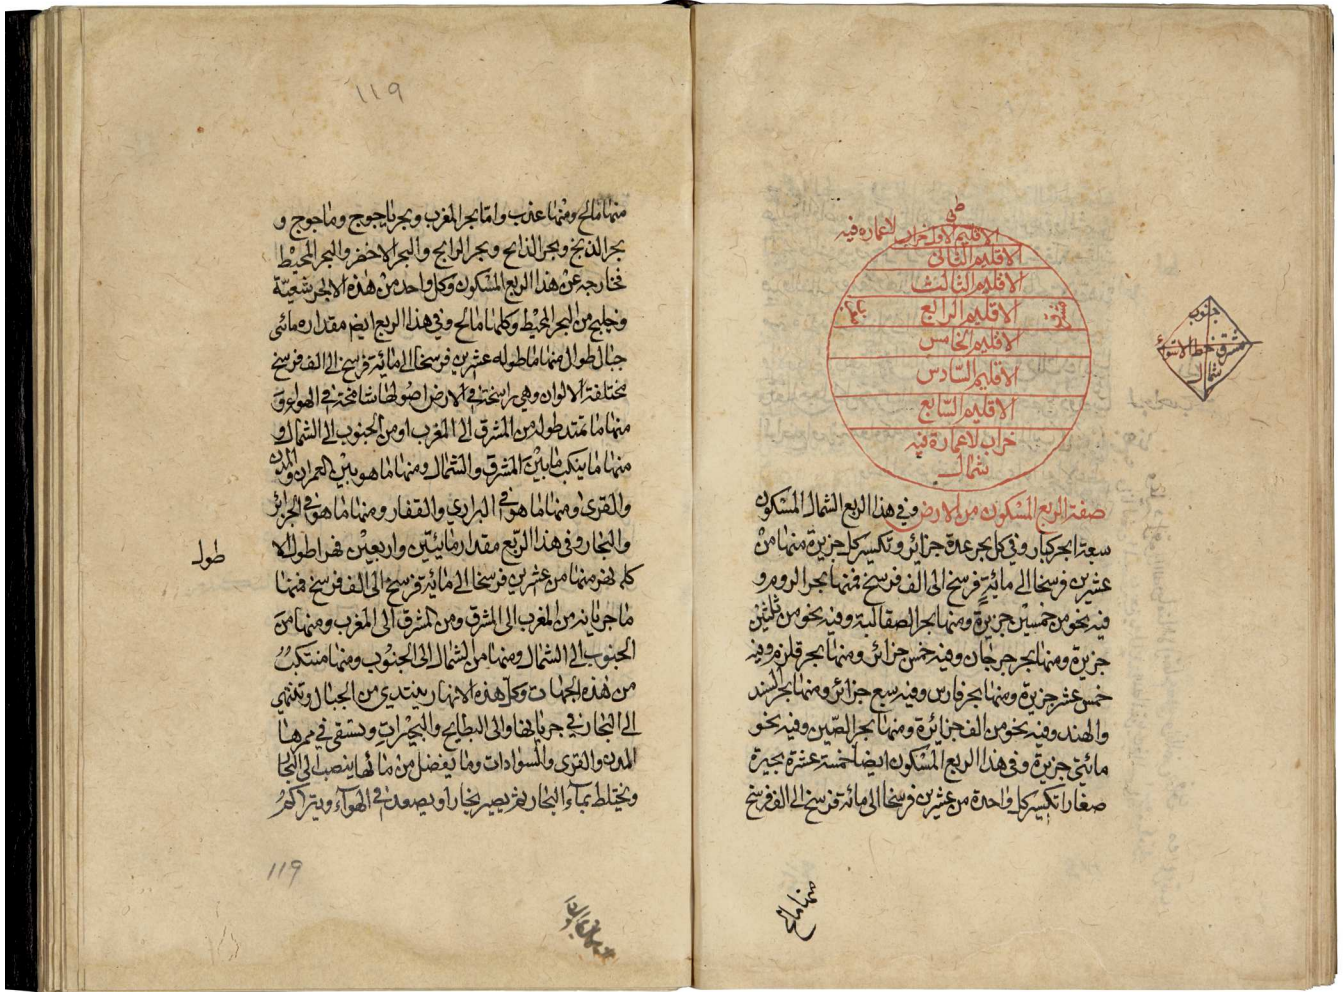 الاقليم الاول خراب لا عمارة فيه
الاقليم الثاني
الاقليم الثالث
الاقليم الرابع
الاقليم الخامس
الاقليم السادس
الاقليم السابع
خراب لا عمارة فيه
شمال
جنوب
مشرق خط الاستوا
شمال
صفة الربع المسكون من الارض وفي هذا الربع الشمال المسكون
سبعة ابحر كبار وفي كل بحر عدة جزائر وتكسير كل جزيرة منها من
عشرين فرسخا الى مائة فرسخ الى الف فرسخ فمنها بحر الروم و
فيه نحو من خمسين جزيرة ومنها بحر الصقالبة وفيه نحو من ثلثين
جزيرة ومنها بحر جرجان وفيه خمس جزائر ومنها بحر قلزم وفيه
خمس عشر جزيرة ومنها بحر فارس وفيه سبع جزائر ومنها بحر السند
والهند وفيه نحو من الف جزائرة ومنها بحر الصين وفيه نحو
مائتي جزيرة وفي هذا الربع المسكون ايضا خمسة عشرة بحيرة
صغارا تكسير كل واحدة من عشرين فرسخا الى مائة فرسخ الى الف فرسخ
منها مالح
119
منها مالح ومنها عذب واما بحر المغرب وبحر ياجوج وماجوج و
بحر الذبخ وبحر الذابح وبحر الرابح والبحر الاخضر والبحر المحيط
فخارجه عن هذا الربع المسكون وكل واحد من هذه الابحر شعبة
وخليج من البحر المحيط وكلها مالح وفي هذا الربع ايضم مقداره مائتى
جبال طوال منها ما طوله عشرين فرسخا الى مائة فرسخ الى الف فرسخ
مختلفة الالوان وهي راسخة في الارض اصولها شامخة في الهواء و
منها ما تمتد طوله من المشرق الى المغرب او من الجنوب الى الشمال و
منها ما ينكب ما بين المشرق والشمال ومنها ما هو بين العمران والمدن
والقرى ومنها ما هو في البراري والقفار ومنها ما هو في الجزائر
والبحار وفي هذا الربع مقدار مايتين واربعين نهرا طوال لا
طول
كل نهر منها من عشرين فرسخا الى مائة فرسخ الى الف فرسخ فمنها
ما جريانه من المغرب الى المشرق ومن المشرق الى المغرب ومنها من
الجنوب الى الشمال ومنها من الشمال الى الجنوب ومنها منتكب
من هذه الجهات وكل هذه الانهار يبتدي من الجبال وتنتهي
الى البحار في جريانها والى البطايح والبحيرات وتستقي في ممرها
المدن والقرى والسوادات وما يفضل من مائها ينصب الى البحار
ويختلط بماء البحار ثم يصير بخارا ويصعد في الهواء ويتراكم
119